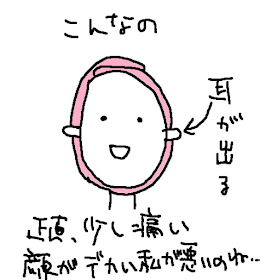 こんなの
耳が出る
正直、少し痛い
顔がデカい私が悪いのね…